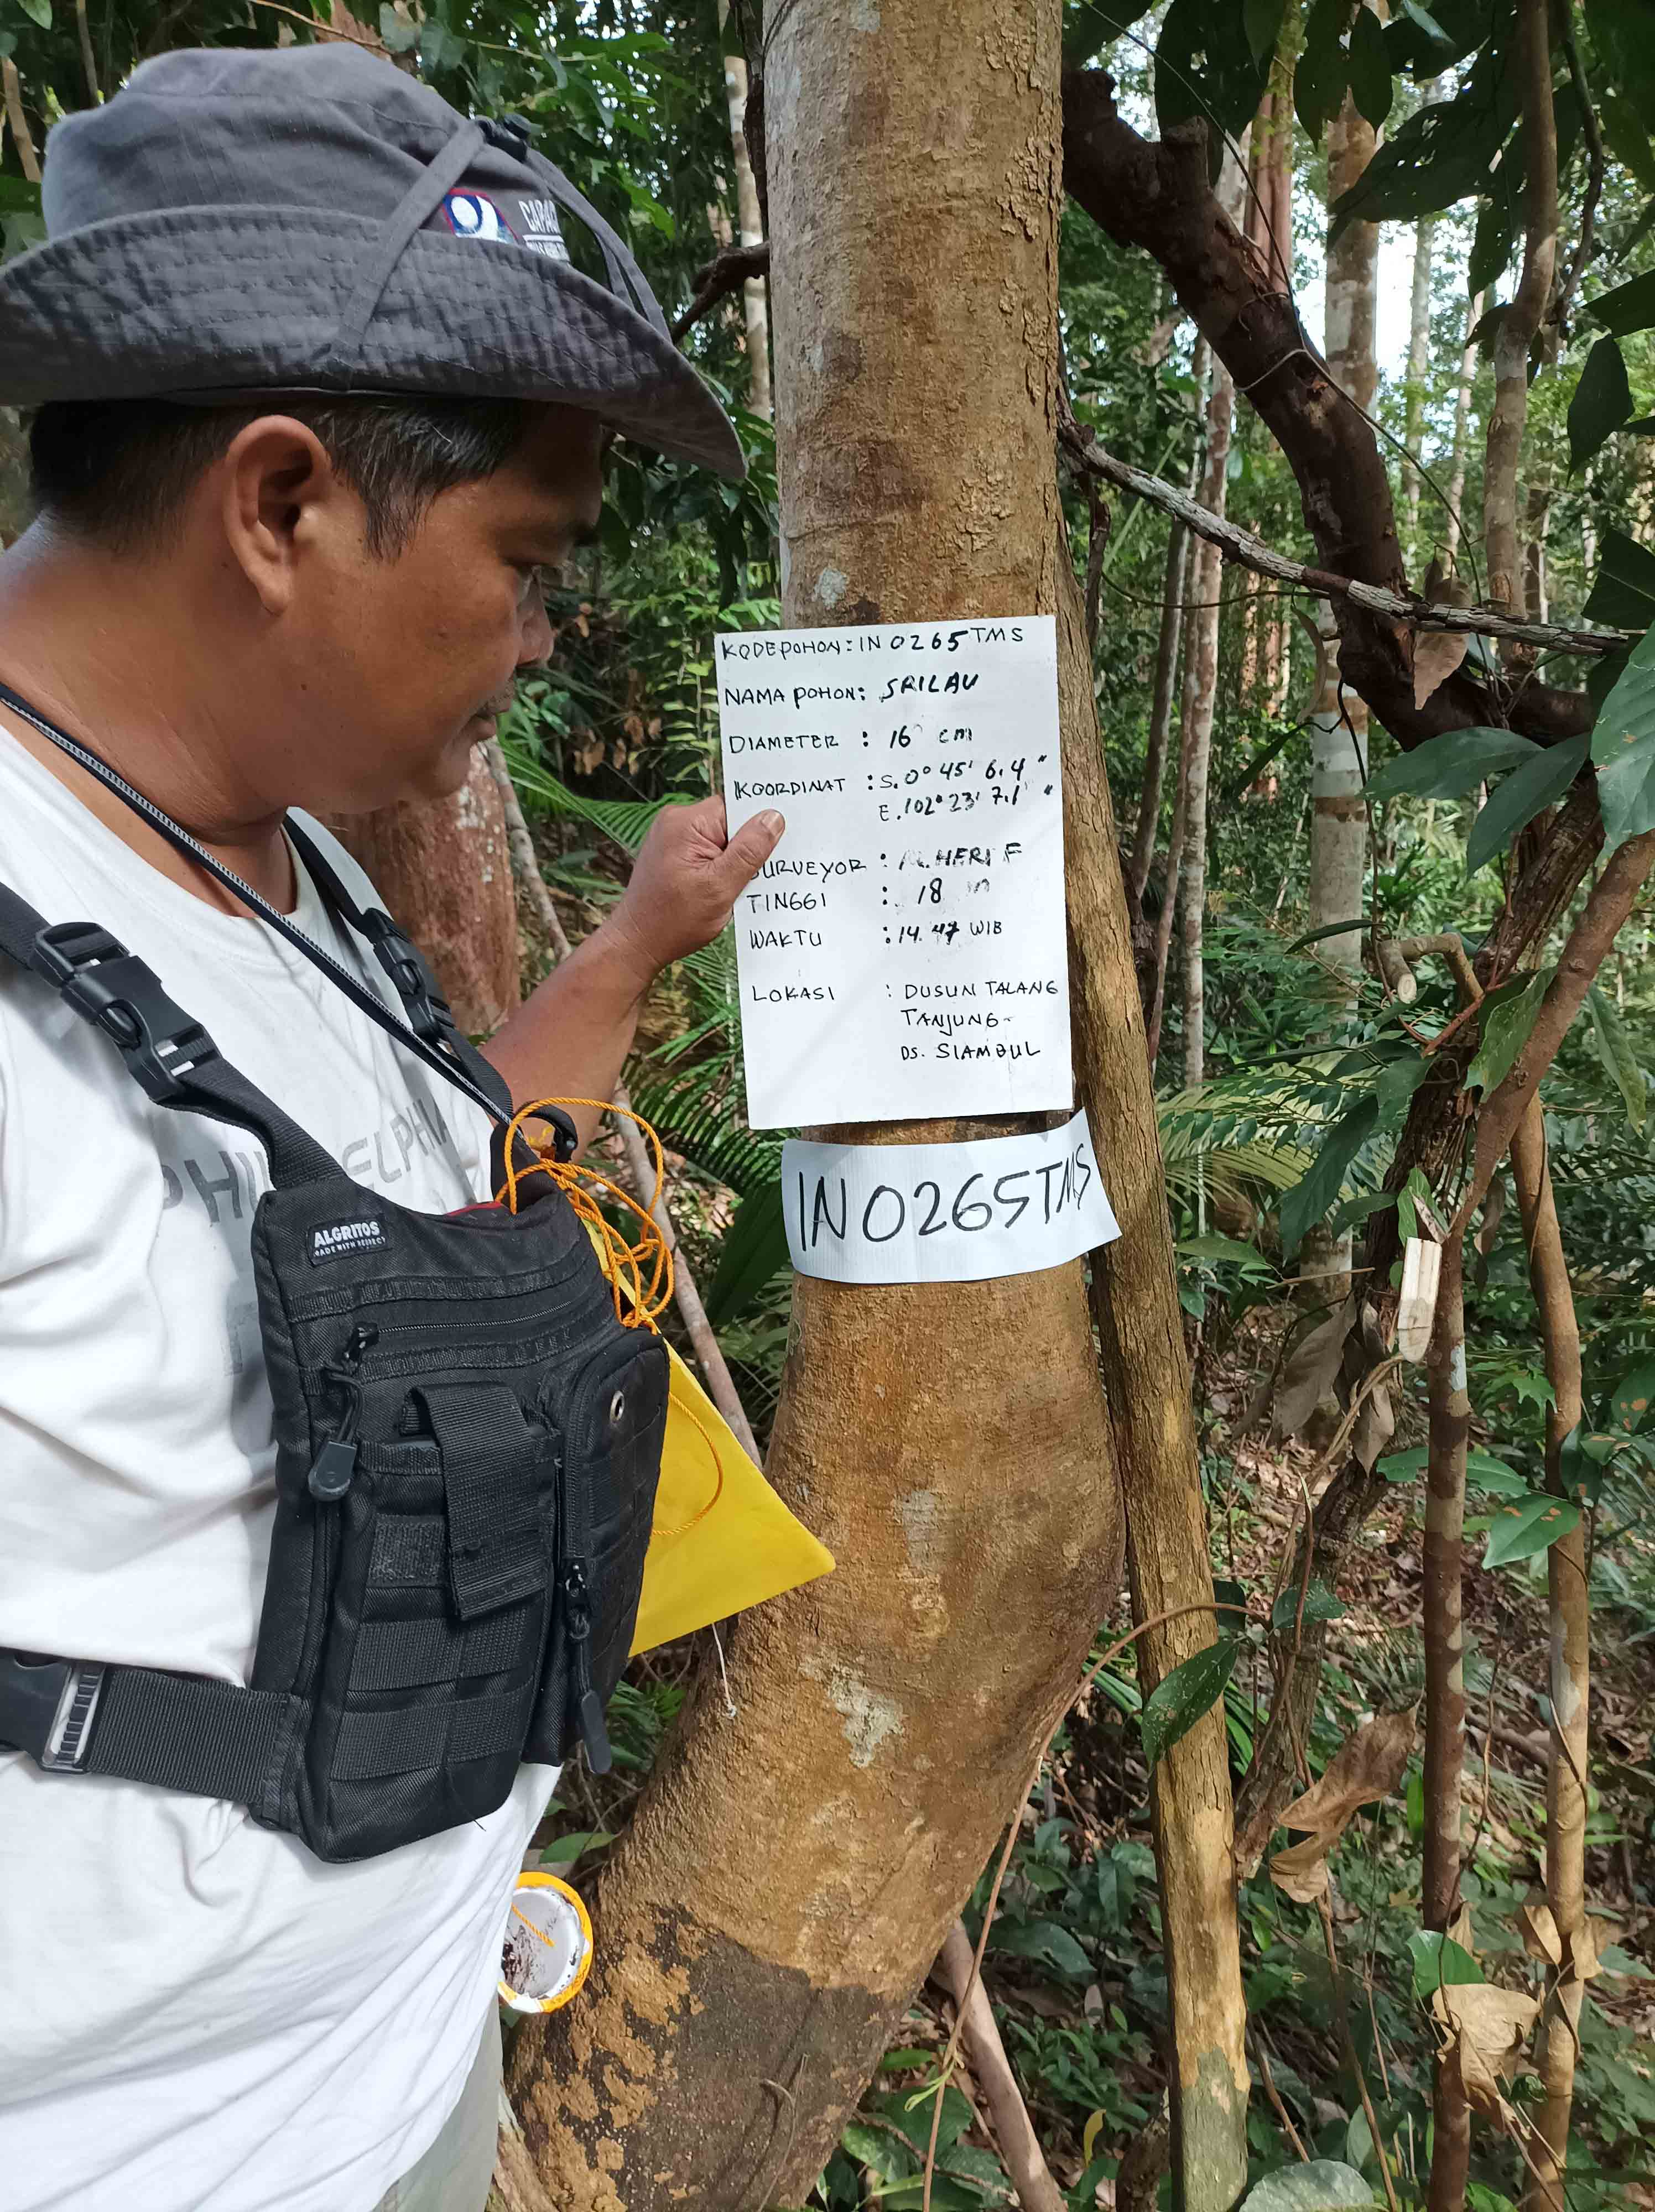 CAPAC
KODE POHON : IN 0265 TMS
NAMA POHON : SRILAU
DIAMETER : 16 cm
KOORDINAT : S. 0° 45' 6.4"
E. 102° 23' 7.1"
SURVEYOR : M. HERI F
TINGGI : 18 m
WAKTU : 14.47 WIB
LOKASI : DUSUN TALANG
TANJUNG-
DS. SIAMBUL
IN0265TMS
PHILADELPHIA
ALGRITOS
MADE WITH RESPECT